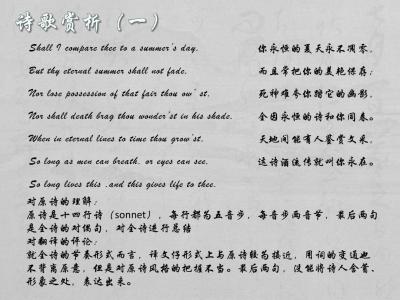 诗歌赏析（一）
Shall I compare thee to a summer's day. 你永恒的夏天永不凋零，
But thy eternal summer shall not fade. 而且常把你的美艳保存；
Nor lose possession of that fair thou ow' st. 死神难夸你踏它的幽影，
Nor shall death brag thou wonder'st in his shade. 全因永恒的诗和你同春。
When in eternal lines to time thou grow'st. 天地间能有人鉴赏文采，
So long as men can breath. or eyes can see. 这诗酒流传就叫你永在。
So long lives this .and this gives life to thee.
对原诗的理解：
原诗是十四行诗（sonnet），每行都为五音步，每音步两音节，最后两句
是全诗的对偶句，对全诗进行总结
对翻译的评论：
就全诗的节奏形式而言，译文仔形式上与原诗较为接近，用词的变通也
不背离原意，但是对原诗风格的把握不当。最后两句，没能将诗人含蓄、
形象之处，表达出来。